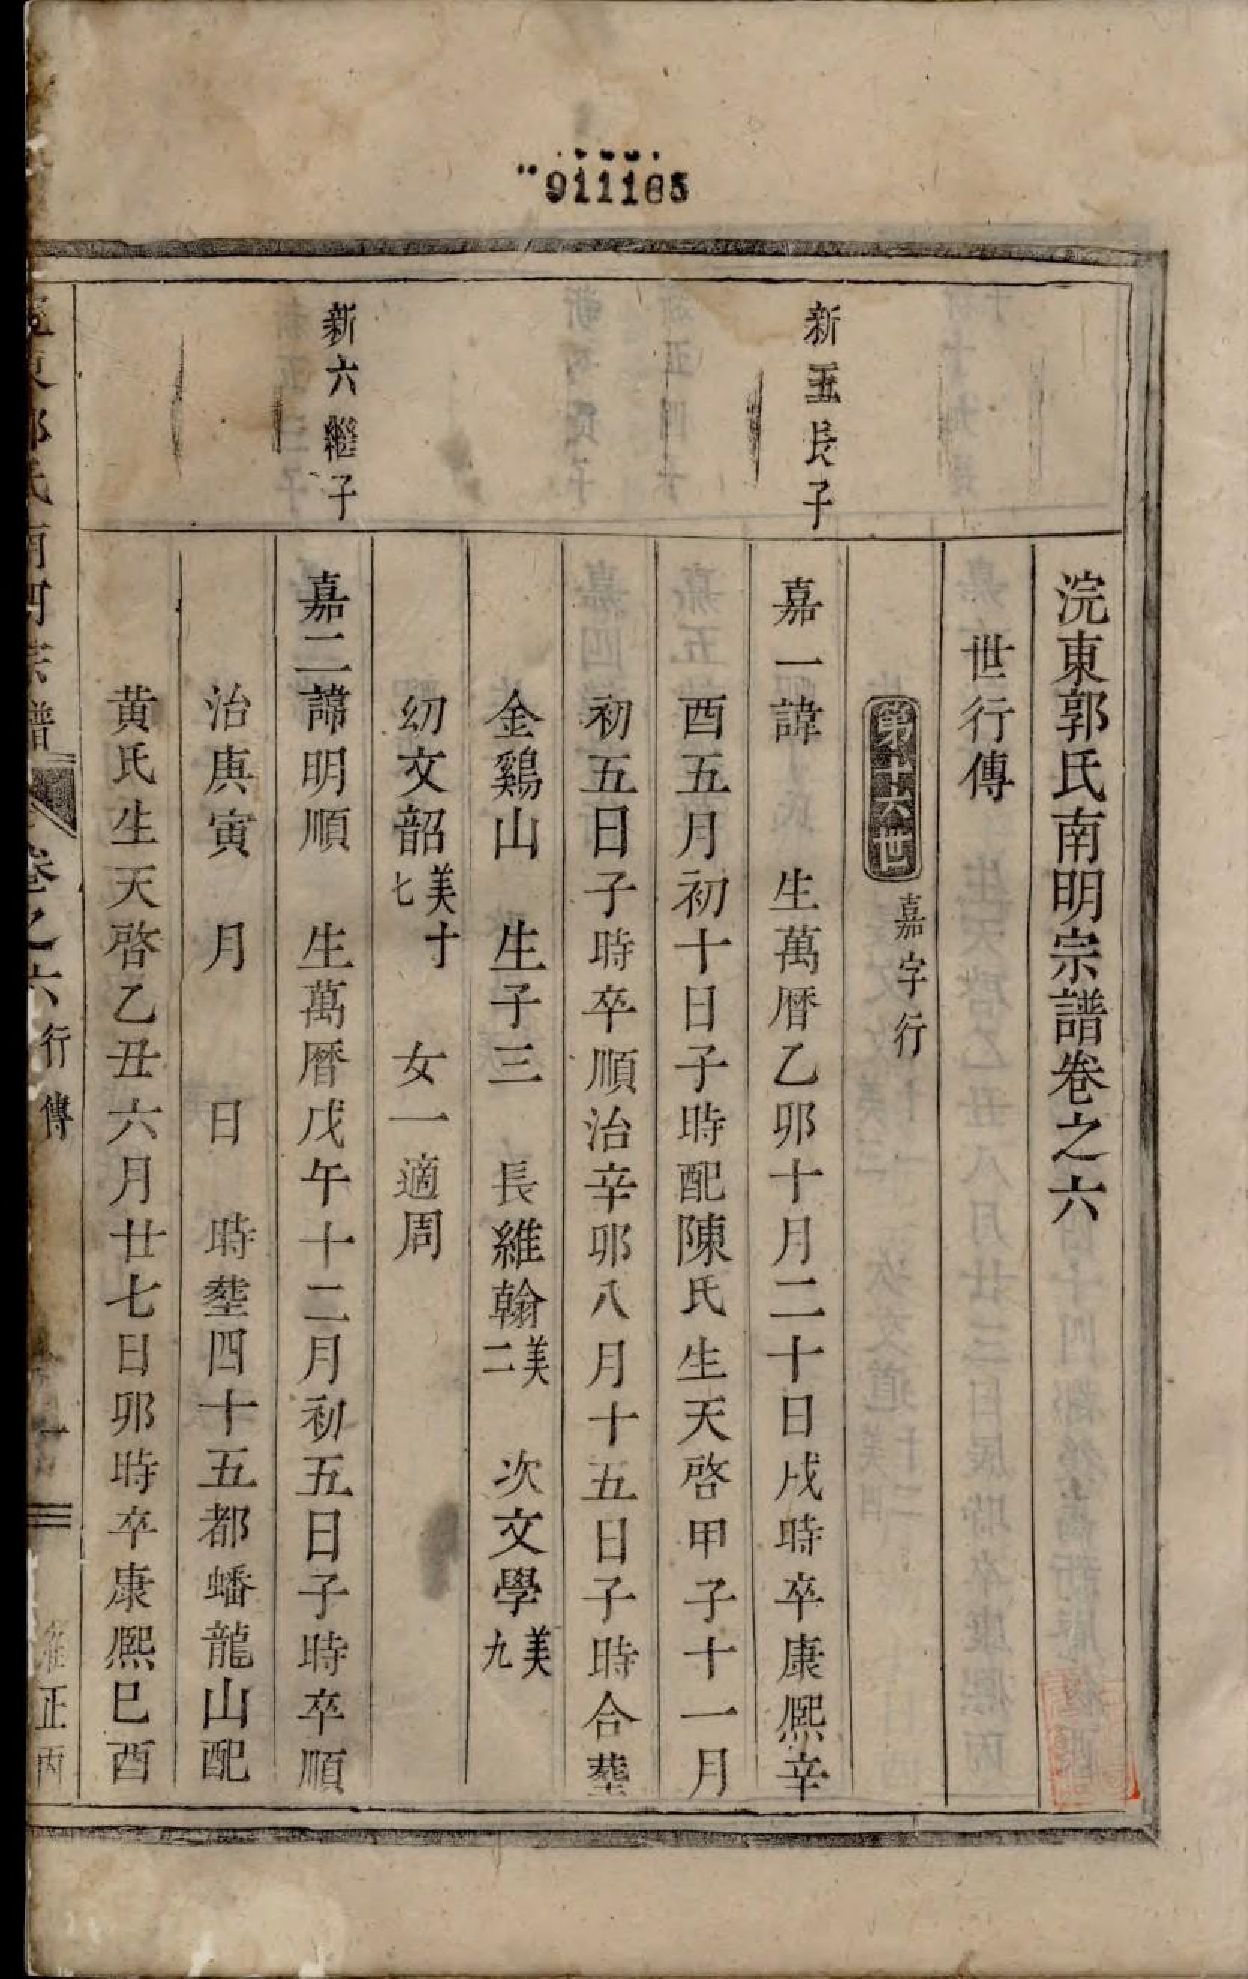 911165
浣東郭氏南明宗譜卷之六
世行傳
第十六世 嘉字行
新五長子
嘉一諱 生萬曆乙卯十月二十日戌時卒康熙辛
酉五月初十日子時配陳氏生天啓甲子十一月
初五日子時卒順治辛卯八月十五日子時合塟
金鷄山 生子三 長維翰美二 次文學美九
幼文韶美十七 女一適周
新六繼子
嘉二諱明順 生萬曆戊午十二月初五日子時卒順
治庚寅 月 日 時塟四十五都蟠龍山配
黄氏生天啓乙丑六月廿七日卯時卒康熙巳酉
東郭氏南明宗譜 卷之六 行傳 一 雍正丙